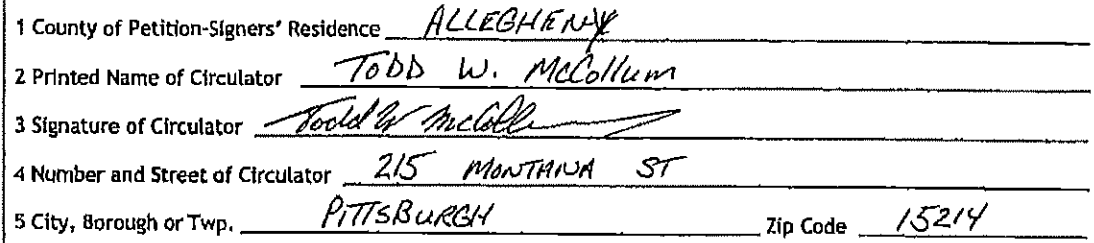 1 County of Petition-Signers' Residence ALLEGHENY
2 Printed Name of Circulator TODD W. McCollum
3 Signature of Circulator Todd W McCollum
4 Number and Street of Circulator 215 MONTANA ST
5 City, Borough or Twp. PITTSBURGH Zip Code 15214